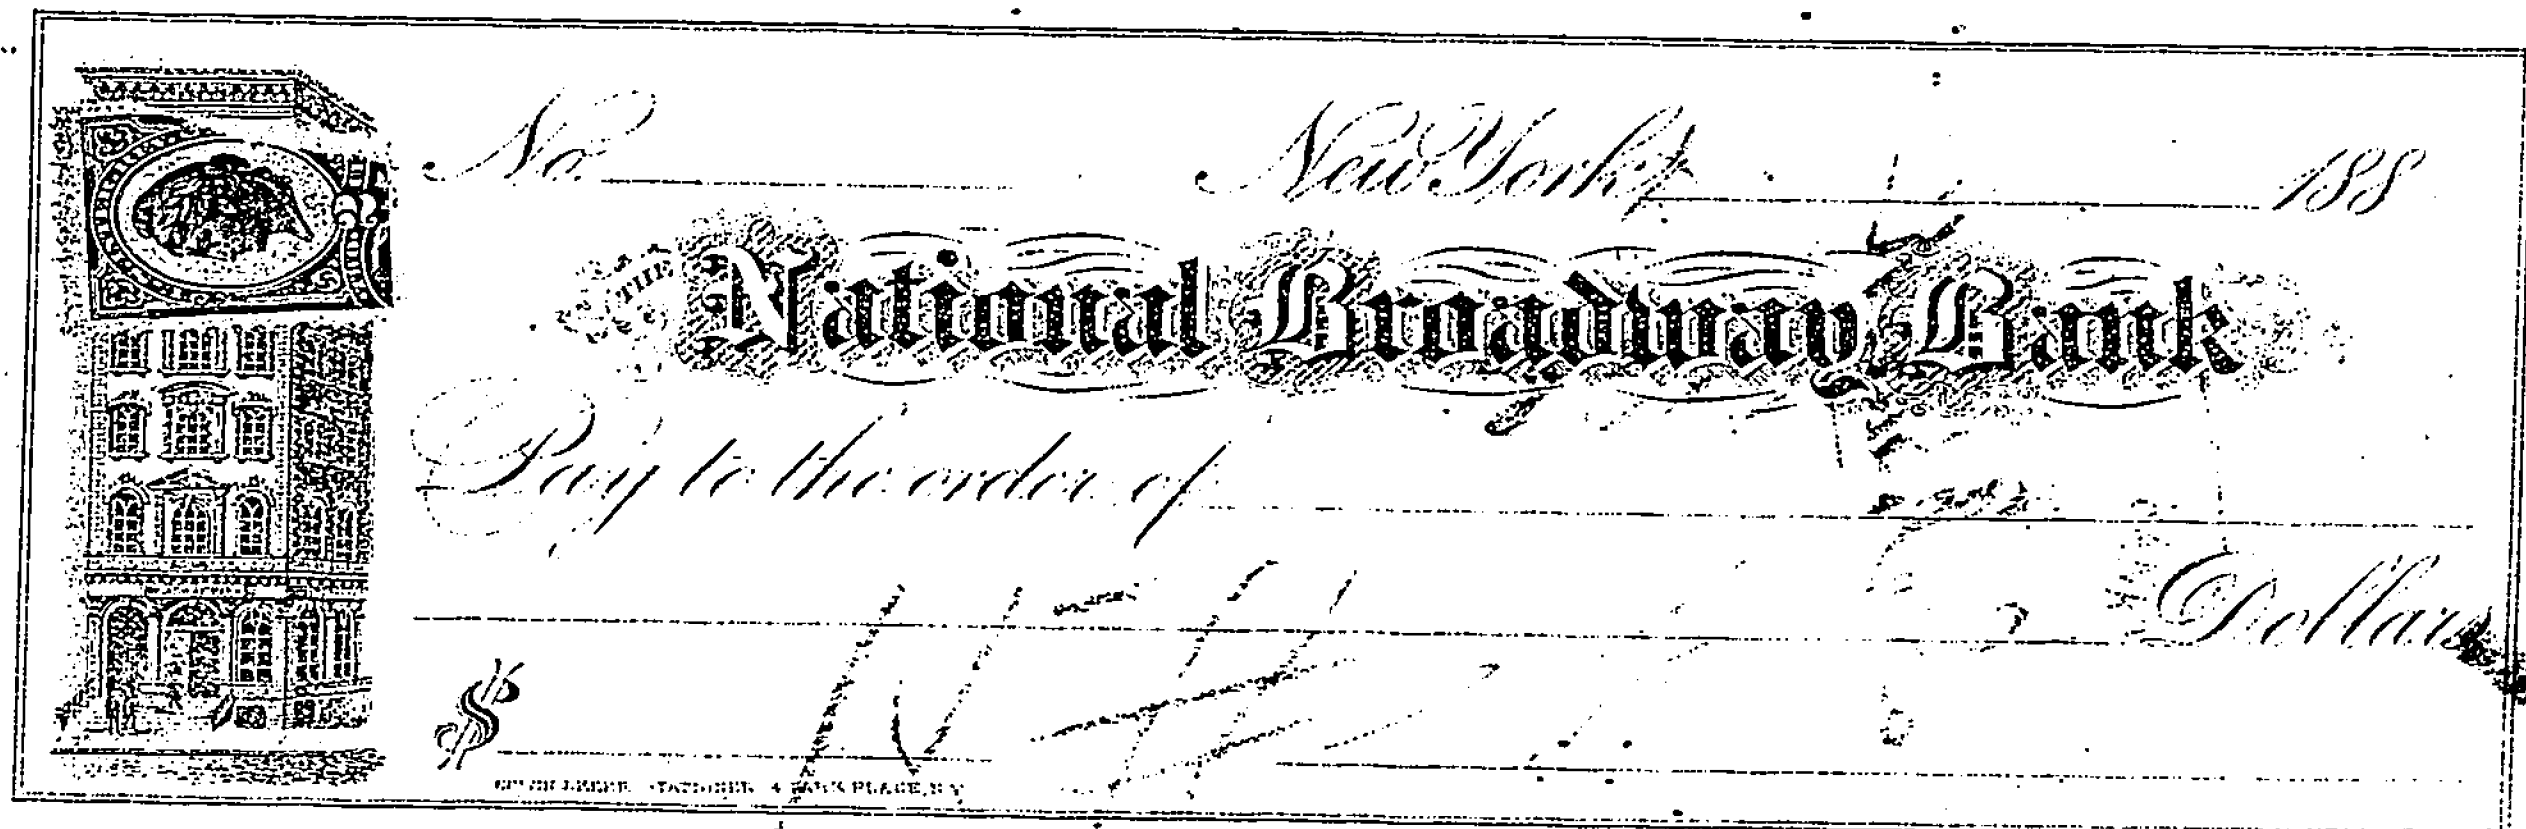 No. New York, 188
THE National Broadway Bank
Pay to the order of
Dollars
$
STATIONER 4 PARK PLACE, N.Y.